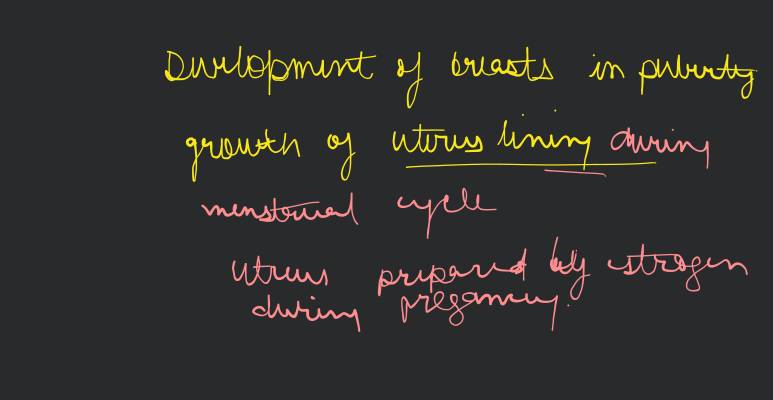 Development of breasts in puberty
growth of uterus lining during
menstrual cycle
uterus prepared by estrogen
during pregancy.